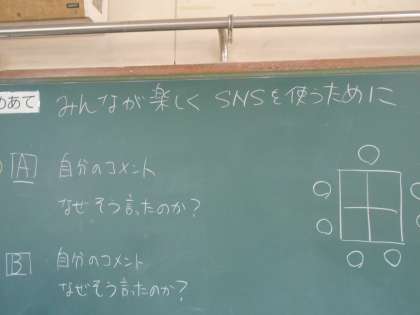 めあて みんなが楽しくSNSを使うために
A 自分のコメント
なぜそう言ったのか?
B 自分のコメント
なぜそう言ったのか?